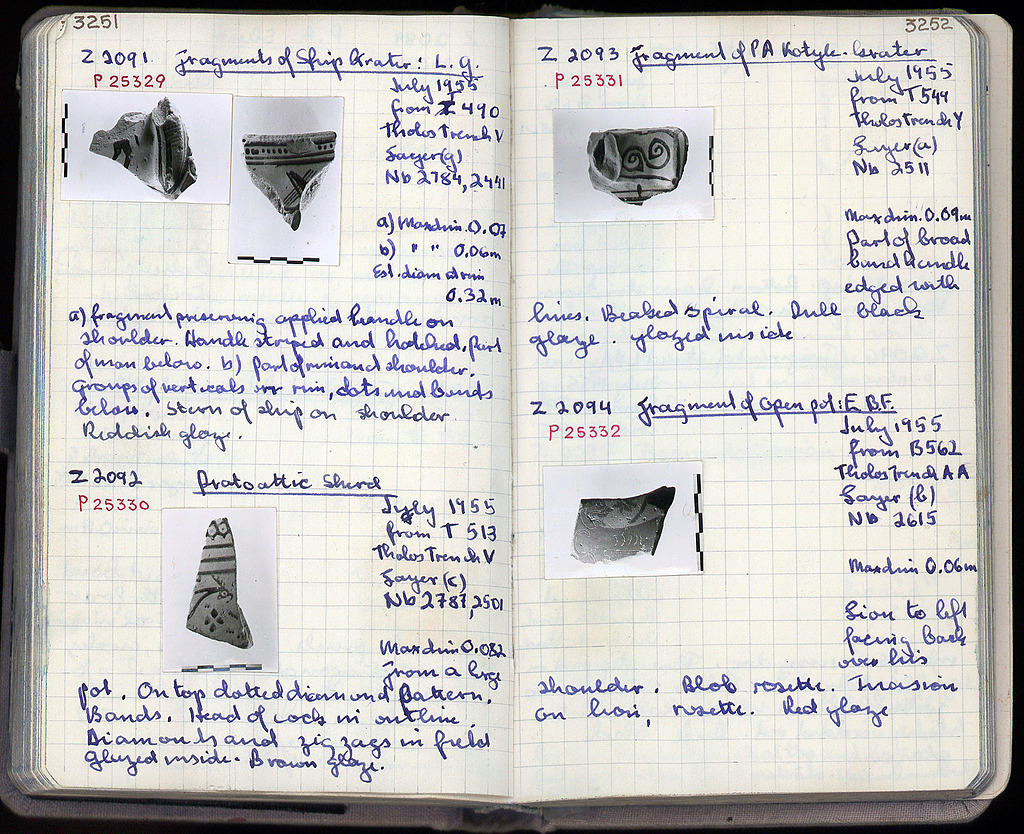 3251
Z 2091 Fragments of Ship Krater: L.G.
P 25329
July 1955
from I 490
Tholos Trench V
Layer (g)
Nb 2784, 2441
a) Max dim. 0.07
b) " " 0.06m
Est. diam at rim
0.32 m
a) fragment preserving applied handle on
shoulder. Handle striped and hatched. Part
of man below. b) Part of rim and shoulder.
Groups of verticals on rim, dots and bands
below. Stern of ship on shoulder
Reddish glaze.
Z 2092 Protoattic Sherd
P 25330
July 1955
from T 513
Tholos Trench V
Layer (c)
Nb 2787, 2501
Max dim 0.082
From a large
pot. On top dotted diamond pattern.
Bands. Head of cock in outline.
Diamonds and zig zags in field
Glazed inside. Brown glaze.
3252
Z 2093 Fragment of PA Kotyle-Krater
P 25331
July 1955
from T 544
Tholos Trench Y
Layer (a)
Nb 2511
Max dim. 0.09m
Part of broad
band handle
edged with
lines. Beaked spiral. Dull black
glaze. glazed inside
Z 2094 Fragment of Open pot: E.B.F.
P 25332
July 1955
from B562
Tholos Trench A A
Layer (b)
Nb 2615
Max dim 0.06m
Lion to left
facing back
over his
shoulder. Blob rosette. Incision
on lion, rosette. Red glaze